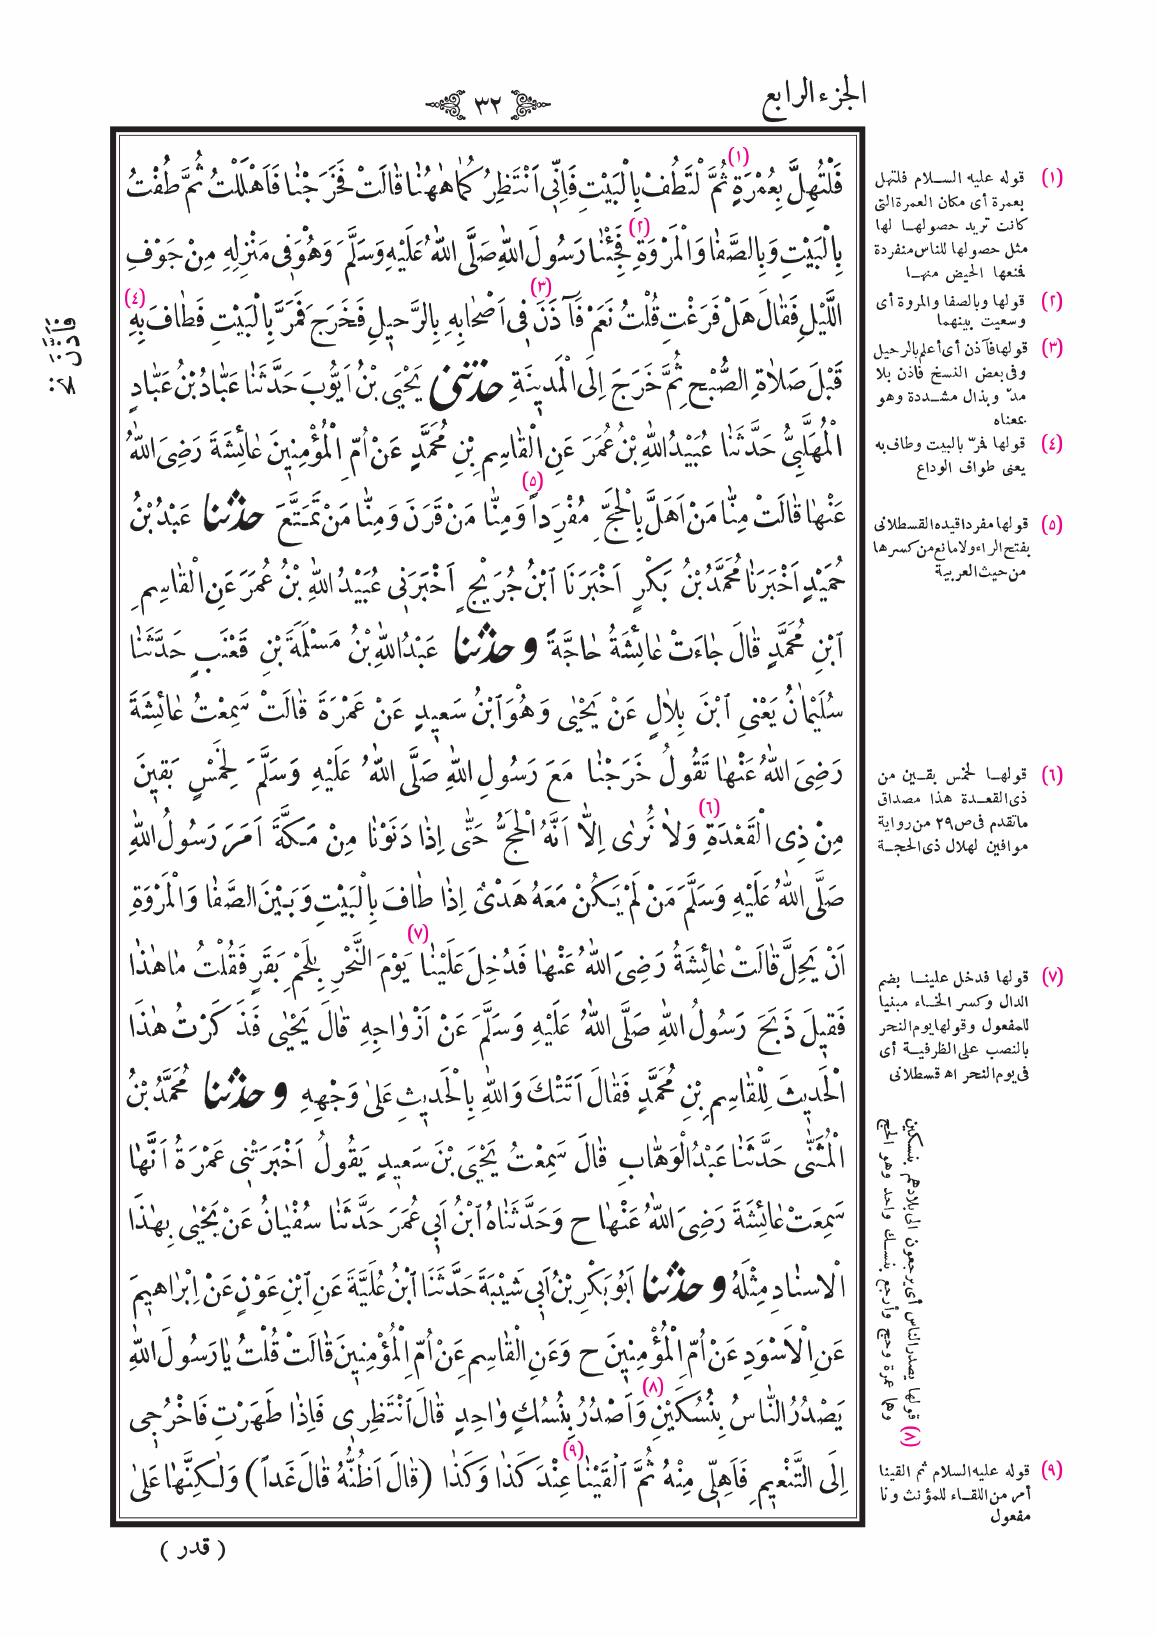 الجزء الرابع
٣٢
فَلْتُهِلَّ بِعُمْرَةٍ (١) ثُمَّ لْتَطُفْ بِالْبَيْتِ فَاِنّى اَنْتَظِرُكُمٰا هٰهُنٰا قٰالَتْ فَخَرَجْنٰا فَاَهْلَلْتُ ثُمَّ طُفْتُ
بِالْبَيْتِ وَبِالصَّفٰا وَالْمَرْوَةِ (٢) فَجِئْنٰا رَسُولَ اللّٰهِ صَلَّى اللّٰهُ عَلَيْهِ وَسَلَّمَ وَهُوَفى مَنْزِلِهِ مِنْ جَوْفِ
اللَّيْلِ فَقٰالَ هَلْ فَرَغْتِ قُلْتُ نَعَمْ فَآذَنَ (٣) فى اَصْحٰابِهِ بِالرَّحيلِ فَخَرَجَ فَمَرَّ بِالْبَيْتِ فَطٰافَ بِهِ (٤)
قَبْلَ صَلاٰةِ الصُّبْحِ ثُمَّ خَرَجَ اِلَى الْمَدينَةِ حدثنى يَحْيَى بْنُ اَيُّوبَ حَدَّثَنٰا عَبّٰادُ بْنُ عَبّٰادٍ
الْمُهَلَّبِىُّ حَدَّثَنٰا عُبَيْدُاللّٰهِ بْنُ عُمَرَ عَنِ الْقٰاسِمِ بْنِ مُحَمَّدٍ عَنْ اُمِّ الْمُؤْمِنينَ عٰائِشَةَ رَضِىَ اللّٰهُ
عَنْهٰا قٰالَتْ مِنّٰا مَنْ اَهَلَّ بِالْحَجِّ مُفْرِداً (٥) وَمِنّٰا مَنْ قَرَنَ وَمِنّٰا مَنْ تَمَتَّعَ حدثنا عَبْدُ بْنُ
حُمَيْدٍ اَخْبَرَنٰا مُحَمَّدُ بْنُ بَكْرٍ اَخْبَرَنَا ابْنُ جُرَيْجٍ اَخْبَرَنى عُبَيْدُ اللّٰهِ بْنُ عُمَرَ عَنِ الْقٰاسِمِ
ابْنِ مُحَمَّدٍ قٰالَ جٰاءَتْ عٰائِشَةُ حٰاجَّةً وحدثنا عَبْدُاللّٰهِ بْنُ مَسْلَمَةَ بْنِ قَعْنَبٍ حَدَّثَنٰا
سُلَيْمٰانُ يَعْنِى ابْنَ بِلاٰلٍ عَنْ يَحْيٰى وَهُوَ ابْنُ سَعيدٍ عَنْ عَمْرَةَ قٰالَتْ سَمِعْتُ عٰائِشَةَ
رَضِىَ اللّٰهُ عَنْهٰا تَقُولُ خَرَجْنٰا مَعَ رَسُولِ اللّٰهِ صَلَّى اللّٰهُ عَلَيْهِ وَسَلَّمَ لِخَمْسٍ بَقينَ
مِنْ ذِى الْقَعْدَةِ (٦) وَلاٰ نُرٰى اِلاّٰ اَنَّهُ الْحَجُّ حَتّٰى اِذٰا دَنَوْنٰا مِنْ مَكَّةَ اَمَرَ رَسُولُ اللّٰهِ
صَلَّى اللّٰهُ عَلَيْهِ وَسَلَّمَ مَنْ لَمْ يَكُنْ مَعَهُ هَدْىٌ اِذٰا طٰافَ بِالْبَيْتِ وَبَيْنَ الصَّفٰا وَالْمَرْوَةِ
اَنْ يَحِلَّ قٰالَتْ عٰائِشَةُ رَضِىَ اللّٰهُ عَنْهٰا فَدُخِلَ عَلَيْنٰا (٧) يَوْمَ النَّحْرِ بِلَحْمِ بَقَرٍ فَقُلْتُ مٰا هٰذٰا
فَقيلَ ذَبَحَ رَسُولُ اللّٰهِ صَلَّى اللّٰهُ عَلَيْهِ وَسَلَّمَ عَنْ اَزْوٰاجِهِ قٰالَ يَحْيٰى فَذَكَرْتُ هٰذَا
الْحَديثَ لِلْقٰاسِمِ بْنِ مُحَمَّدٍ فَقٰالَ اَتَتْكَ وَاللّٰهِ بِالْحَديثِ عَلىٰ وَجْهِهِ وحدثنا مُحَمَّدُ بْنُ
الْمُثَنّٰى حَدَّثَنٰا عَبْدُالْوَهّٰابِ قٰالَ سَمِعْتُ يَحْيَى بْنَ سَعيدٍ يَقُولُ اَخْبَرَتْنى عَمْرَةُ اَنَّهٰا
سَمِعَتْ عٰائِشَةَ رَضِىَ اللّٰهُ عَنْهٰا ح وَحَدَّثَنٰاهُ ابْنُ اَبى عُمَرَ حَدَّثَنٰا سُفْيٰانُ عَنْ يَحْيٰى بِهٰذَا
الْاِسنٰادِ مِثْلَهُ وحدثنا اَبُوبَكْرِ بْنُ اَبى شَيْبَةَ حَدَّثَنَا ابْنُ عُلَيَّةَ عَنِ ابْنِ عَوْنٍ عَنْ اِبْرٰاهيمَ
عَنِ الْاَسْوَدِ عَنْ اُمِّ الْمُؤْمِنينَ ح وَعَنِ الْقٰاسِمِ عَنْ اُمِّ الْمُؤْمِنينَ قٰالَتْ قُلْتُ يٰا رَسُولَ اللّٰهِ
يَصْدُرُ النّٰاسُ بِنُسُكَيْنِ (٨) وَاَصْدُرُ بِنُسُكٍ وٰاحِدٍ قٰالَ انْتَظِرى فَاِذٰا طَهَرْتِ فَاخْرُجى
اِلَى التَّنْعيمِ فَاَهِلّى مِنْهُ ثُمَّ الْقَيْنٰا (٩) عِنْدَ كَذٰا وَكَذٰا (قٰالَ اَظُنُّهُ قٰالَ غَداً) وَلٰكِنَّهٰا عَلىٰ
( قدر )
(١) قوله عليه السلام فلتهل
بعمرة أى مكان العمرة التى
كانت تريد حصولها لها
مثل حصولها للناس منفردة
فمنعها الحيض منها
(٢) قولها وبالصفا والمروة أى
وسعيت بينهما
(٣) قولها فآذن أى أعلم بالرحيل
وفى بعض النسخ فأذن بلا
مدّ وبذال مشددة وهو
بمعناه
(٤) قولها فمرّ بالبيت وطاف به
يعنى طواف الوداع
(٥) قولها مفردا قيده القسطلانى
بفتح الراء ولا مانع من كسرها
من حيث العربية
(٦) قولها لخمس بقين من
ذى القعدة هذا مصداق
ما تقدم فى ص ٢٩ من رواية
موافين لهلال ذى الحجة
(٧) قولها فدخل علينا بضم
الدال وكسر الخاء مبنيا
للمفعول وقولها يوم النحر
بالنصب على الظرفية أى
فى يوم النحر اه قسطلانى
(٨) قولها يصدر الناس أى يرجعون الى بلادهم بنسكين
وها عمرة وحج وأرجع بنسك واحد وهو الحج
(٩) قوله عليه السلام ثم القينا
أمر من اللقاء للمؤنث ونا
مفعول
فَأَذَّنَ نخ